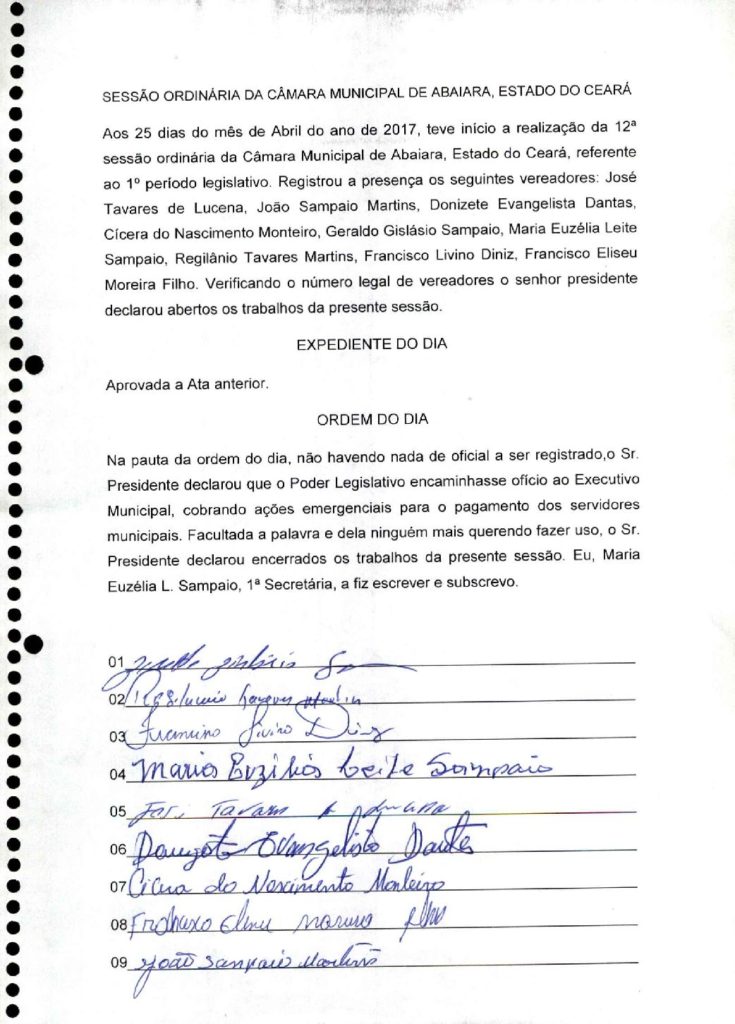 SESSÃO ORDINÁRIA DA CÂMARA MUNICIPAL DE ABAIARA, ESTADO DO CEARÁ
Aos 25 dias do mês de Abril do ano de 2017, teve início a realização da 12ª
sessão ordinária da Câmara Municipal de Abaiara, Estado do Ceará, referente
ao 1º período legislativo. Registrou a presença os seguintes vereadores: José
Tavares de Lucena, João Sampaio Martins, Donizete Evangelista Dantas,
Cícera do Nascimento Monteiro, Geraldo Gislásio Sampaio, Maria Euzélia Leite
Sampaio, Regilânio Tavares Martins, Francisco Livino Diniz, Francisco Eliseu
Moreira Filho. Verificando o número legal de vereadores o senhor presidente
declarou abertos os trabalhos da presente sessão.
EXPEDIENTE DO DIA
Aprovada a Ata anterior.
ORDEM DO DIA
Na pauta da ordem do dia, não havendo nada de oficial a ser registrado,o Sr.
Presidente declarou que o Poder Legislativo encaminhasse ofício ao Executivo
Municipal, cobrando ações emergenciais para o pagamento dos servidores
municipais. Facultada a palavra e dela ninguém mais querendo fazer uso, o Sr.
Presidente declarou encerrados os trabalhos da presente sessão. Eu, Maria
Euzélia L. Sampaio, 1ª Secretária, a fiz escrever e subscrevo.
01
02
03 Francisco Livino Diniz
04 Maria Euzélia Leite Sampaio
05
06 Donizete Evangelista Dantas
07 Cícera do Nascimento Monteiro
08
09 João Sampaio Martins